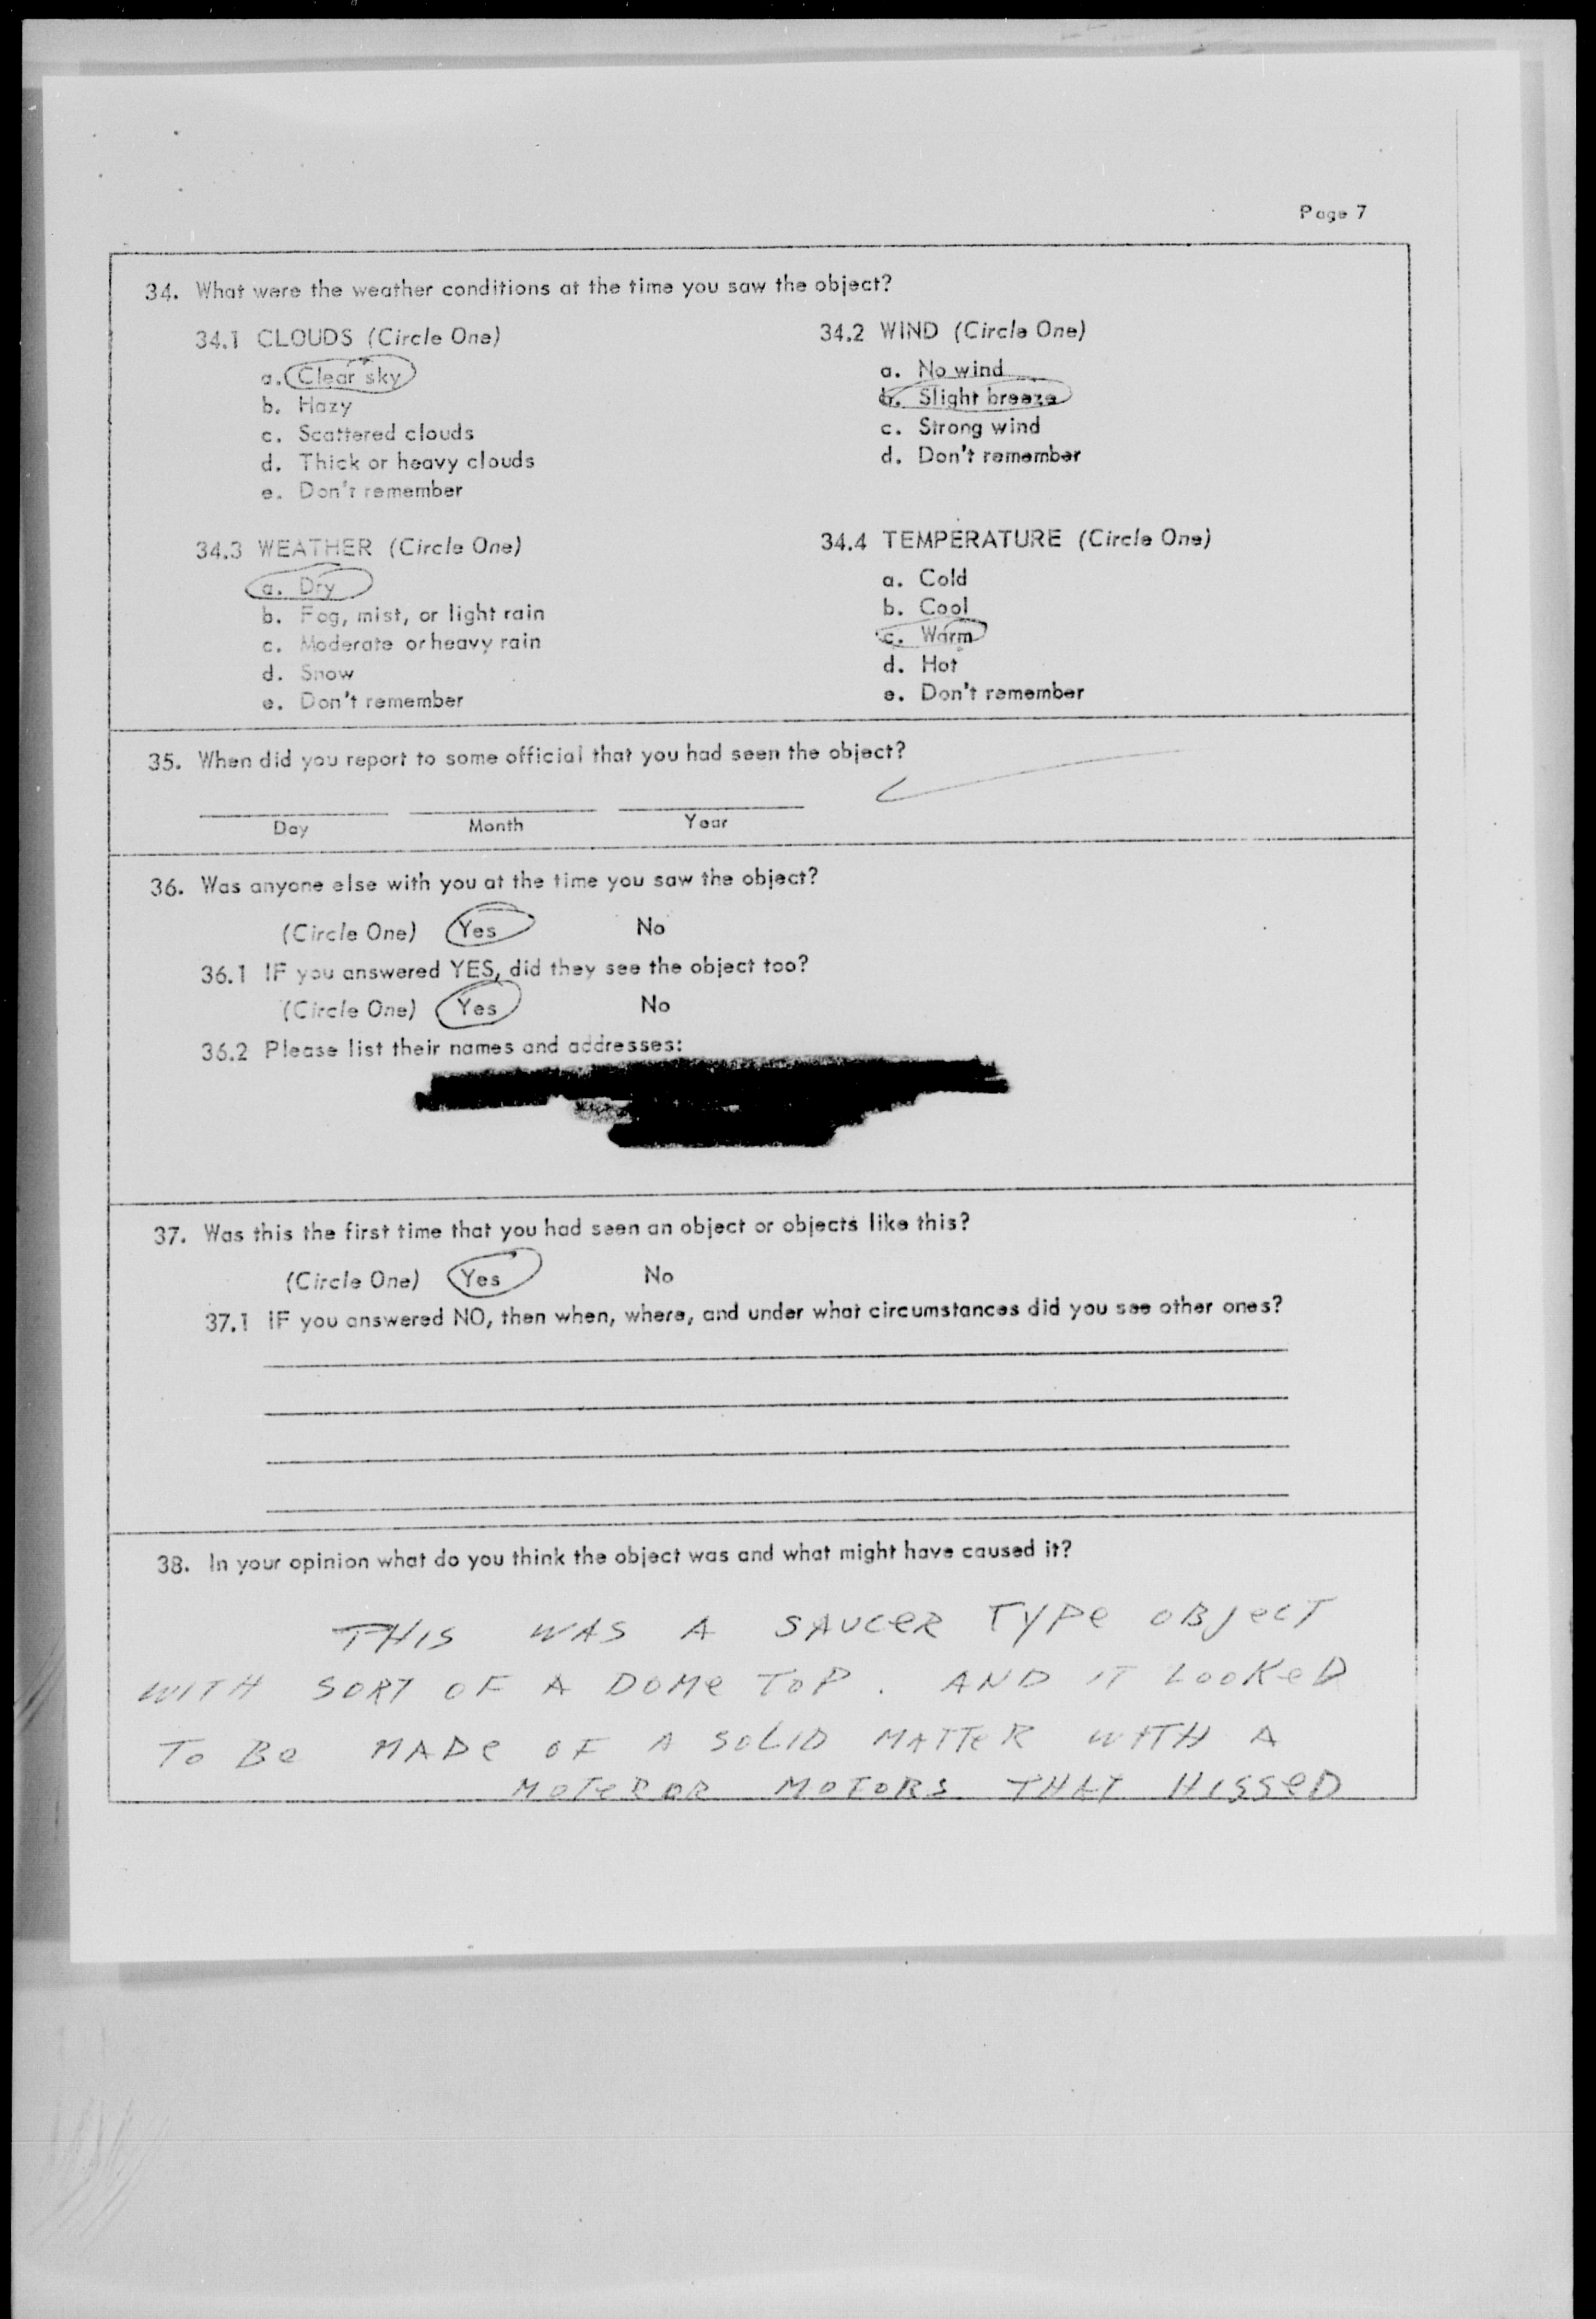 Page 7
34. What were the weather conditions at the time you saw the object?
34.1 CLOUDS (Circle One)
a. Clear sky
b. Hazy
c. Scattered clouds
d. Thick or heavy clouds
e. Don't remember
34.2 WIND (Circle One)
a. No wind
b. Slight breeze
c. Strong wind
d. Don't remember
34.3 WEATHER (Circle One)
a. Dry
b. Fog, mist, or light rain
c. Moderate or heavy rain
d. Snow
e. Don't remember
34.4 TEMPERATURE (Circle One)
a. Cold
b. Cool
c. Warm
d. Hot
e. Don't remember
35. When did you report to some official that you had seen the object?
Day Month Year
36. Was anyone else with you at the time you saw the object?
(Circle One) Yes No
36.1 IF you answered YES, did they see the object too?
(Circle One) Yes No
36.2 Please list their names and addresses:
37. Was this the first time that you had seen an object or objects like this?
(Circle One) Yes No
37.1 IF you answered NO, then when, where, and under what circumstances did you see other ones?
38. In your opinion what do you think the object was and what might have caused it?
THIS WAS A SAUCER TYPe OBJeCT
WITH SORT OF A DOMe TOP. AND IT LOOKeD
TO Be MADe OF A SOLID MATTeR WITH A
MOTeR OR MOTORS THAT HISSeD